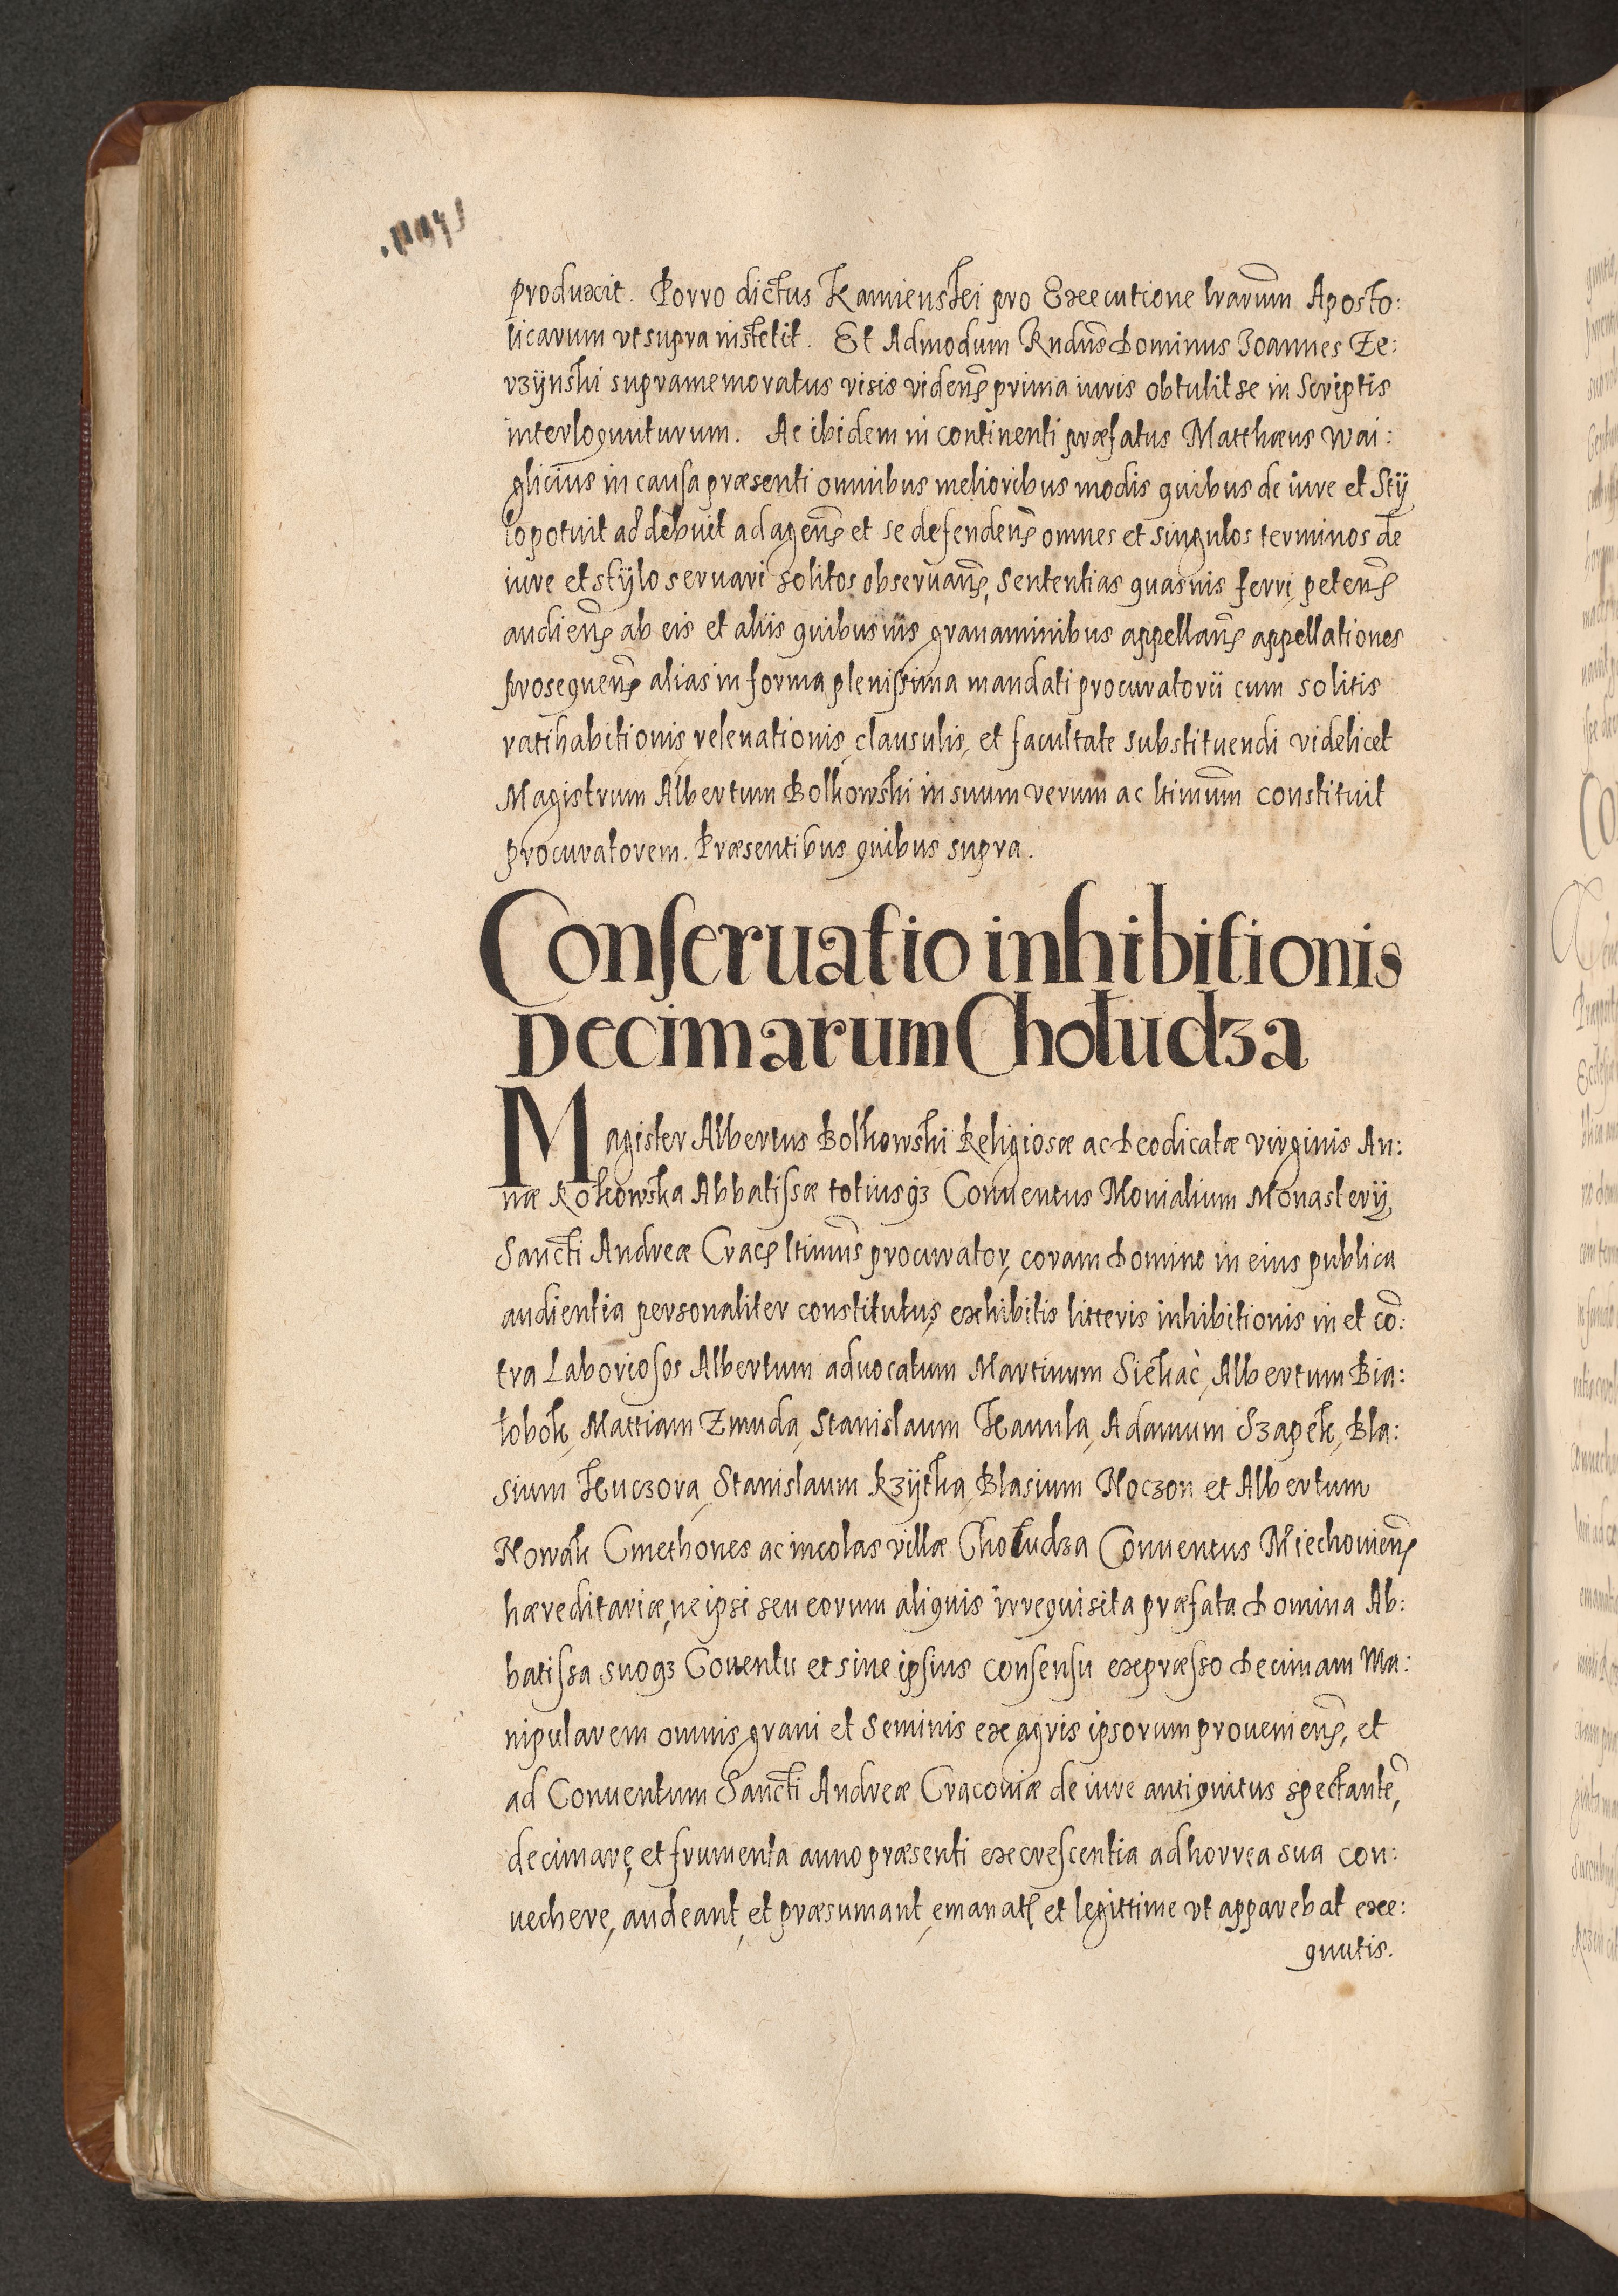 produxit. Porro dictus Kamienskei pro Executione lrarum̃ Aposto:
licarum vt supra nistetit. Et Admodum Rndus̃ Dominus Joannes Ze:
rzÿnski supramemoratus visis videnꝭ prima iuris obtulit se in Scriptis
interloquuturum. Ac ibidem in continenti præfatus Matthæus Wai:
glicius in causa præsenti omnibus melioribus modis quibus de iure et Stÿ
lo potuit ac debuit ad agenꝭ et se defendenꝭ omnes et singulos terminos de
iure et stÿlo seruari solitos obseruanꝭ, Sententias quasuis ferri petenꝭ
audienꝭ ab eis et aliis quibusuis grauaminibus appellanꝭ appellationes
prosequenꝭ alias in forma plenissima mandati procuratorii cum solitis
ratihabitionis, releuationis, clausulis, et facultate substituendi videlicet
Magistrum Albertum Bolkowski in suum verum ac ltimum̃ constituit
procuratorem. Præsentibus quibus supra.
Conseruatio inhibitionis
Decimarum Chołudza
Magister Albertus Bolkowski Religiosæ ac Deodicatæ virginis An:
næ Rokowska Abbatissæ totiusqꝫ Conuentus Monialium Monasterÿ
Sancti Andreæ Cracꝭ ltimus̃ procurator, coram Domino in eius publica
audientia personaliter constitutus, exhibitis litteris inhibitionis in et cõ:
tra Laboriosos Albertum aduocatum Martinum Siekacz, Albertum Bia:
łobok, Mattiam Zmuda, Stanislaum Kanula, Adamum Szapek, Bla:
sium Kuczora, Stanislaum Rzÿtka, Blasium Noczon et Albertum
Nowak Cmethones ac incolas villæ Chołudza Conuentus Miechouienꝭ
hæreditariæ, ne ipsi seu eorum aliquis irrequisita præfata Domina Ab:
batissa suoqꝫ Couentu et sine ipsius consensu expræsso Decimam Ma:
nipularem omnis grani et Seminis ex agris ipsorum prouenienꝭ, et
ad Conuentum Sancti Andreæ Cracouiæ de iure antiquitus spectantẽ,
decimare, et frumenta anno præsenti excrescentia ad horrea sua con:
uechere, audeant, et præsumant, emanatꝭ et legittime vt apparebat exe:
quutis.